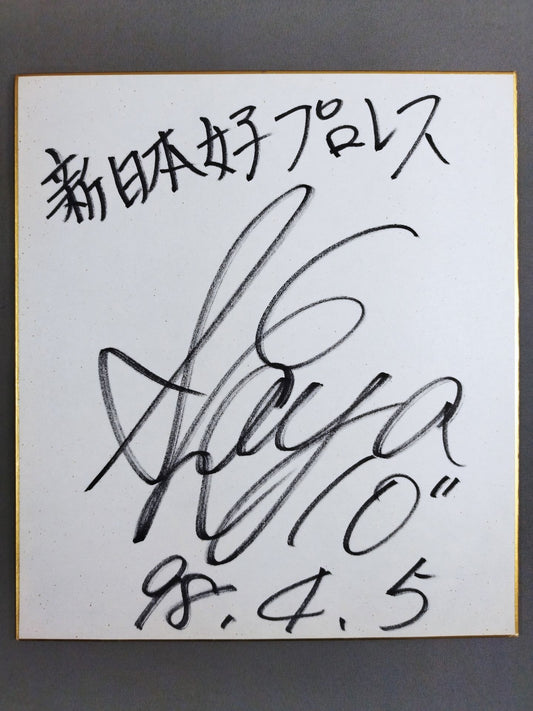 新日本女子プロレス
98.4.5